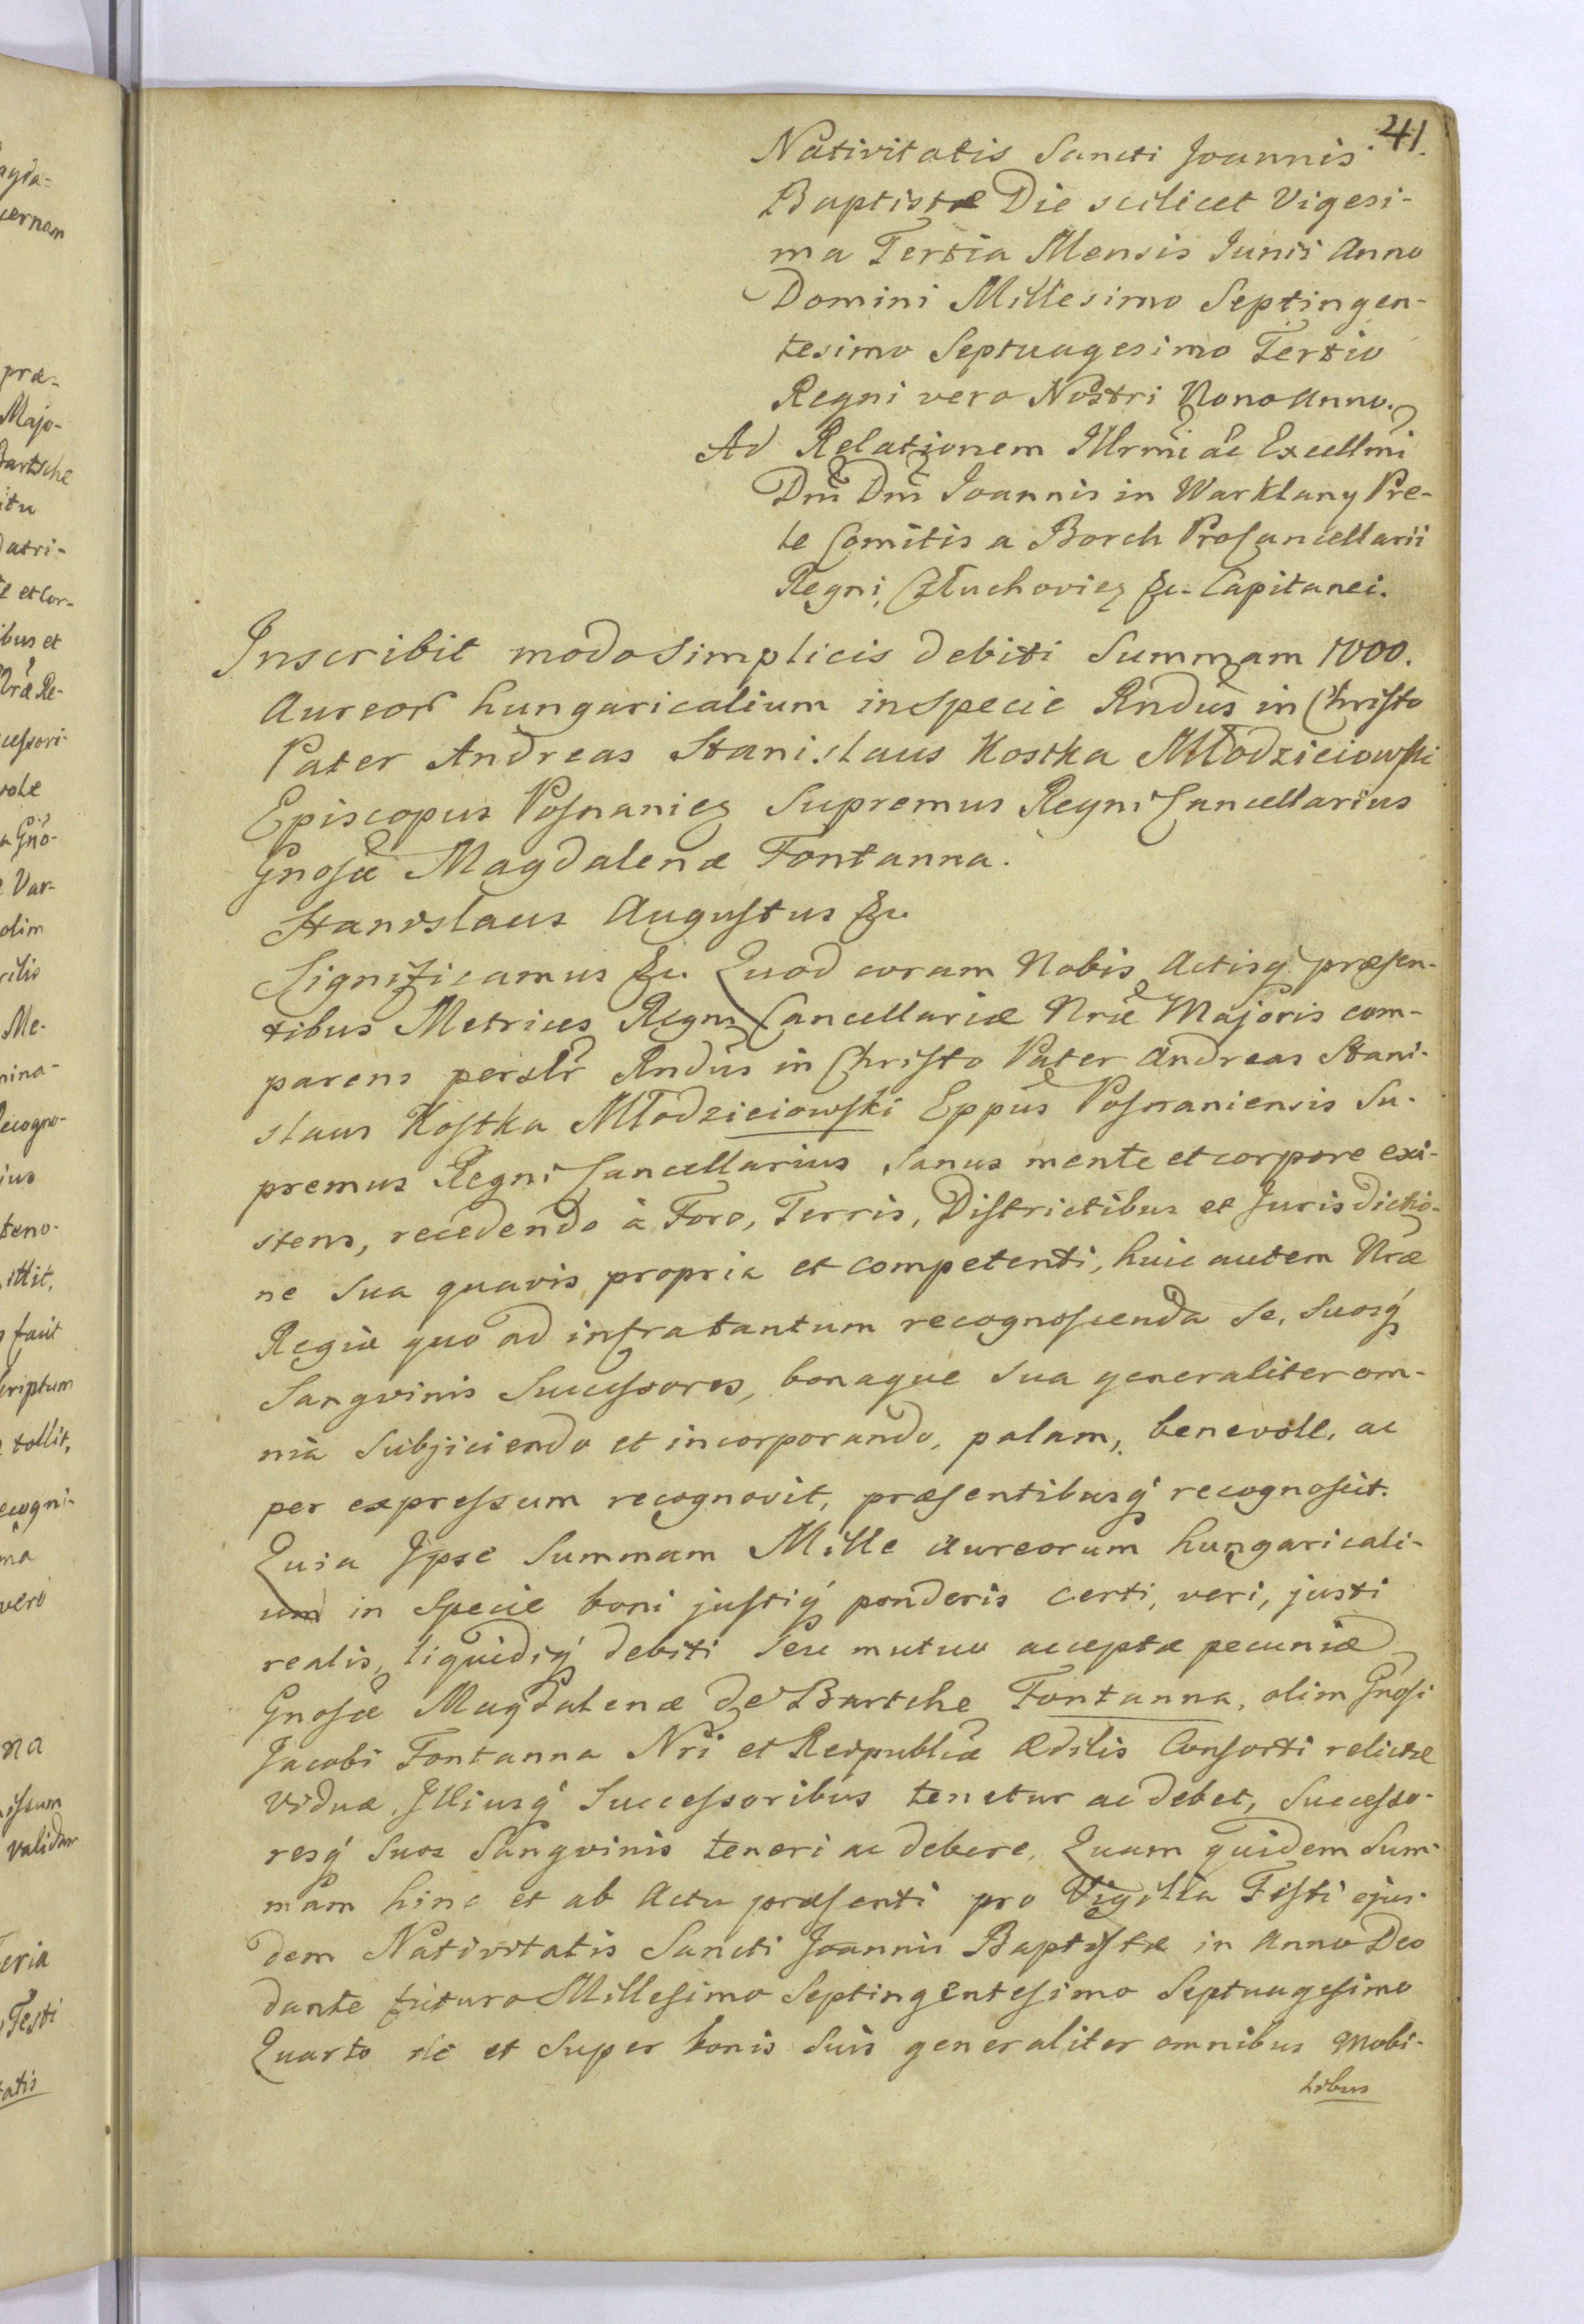 41.
Nativitatis Sancti Joannis
Baptistæ Die scilicet Vigesi-
ma Tertia Mensis Junii Anno
Domini Millesimo Septingen-
tesimo Septuagesimo Tertio
Regni vero Nostri Nono Anno.
Ad Relationem Illrmi ac Excellmi
Dni Dni Joannis in Warklany Pre-
le Comitis a Borch ProCancellarii
Regni, Człuchovien &c. Capitanei.
Inscribit modo Simplicis debiti Summam 1000.
Aureor hungaricalium in specie Rndus in Christo
Pater Andreas Stanislaus Kostka Młodzieiowski
Episcopus Posnanien Supremus Regni Cancellarius
Gnosæ Magdalenæ Fontanna.
Stanislaus Augustus &c.
Significamus &c. Quod coram Nobis Actisq præsen-
tibus Metrices Regni Cancellariæ Nræ Majoris com-
parens perslr Rndus in Christo Pater Andreas Stani-
slaus Kostka Młodzieiowski Eppus Posnaniensis Su-
premus Regni Cancellarius Sanus mente et corpore exi-
stens, recedendo à Foro, Terris, Districtibus et Jurisdictio-
ne Sua quavis propria et competenti, huic autem Nræ
Regiæ quo ad infra tantum recognoscenda Se, Suosq
Sangvinis Successores, bonaque Sua generaliter om-
nia Subjiciendo et incorporando, palam, benevole, ac
per expressum recognovit, præsentibusq recognoscit.
Quia Ipse Summam Mille Aureorum hungaricali-
um in Specie boni justiq ponderis certi, veri, justi
realis, liquidiq debiti Seu mutuo acceptæ pecuniæ
Gnosæ Magdalenæ de Bartche Fontanna, olim Gnosi
Jacobi Fontanna Nri et Reipublicæ Ædilis Consorti relictæ
Viduæ, Illiusq Successoribus tenetur ac debet, Successo-
resq Suos Sangvinis teneri ac debere, Quam quidem Sum-
mam hinc et ab Actu præsenti pro Vigilia Festi ejus-
dem Nativitatis Sancti Joannis Baptistæ in Anno Deo
dante futuro Millesimo Septingentesimo Septuagesimo
Quarto de et Super bonis Suis generaliter omnibus Mobi-
libus